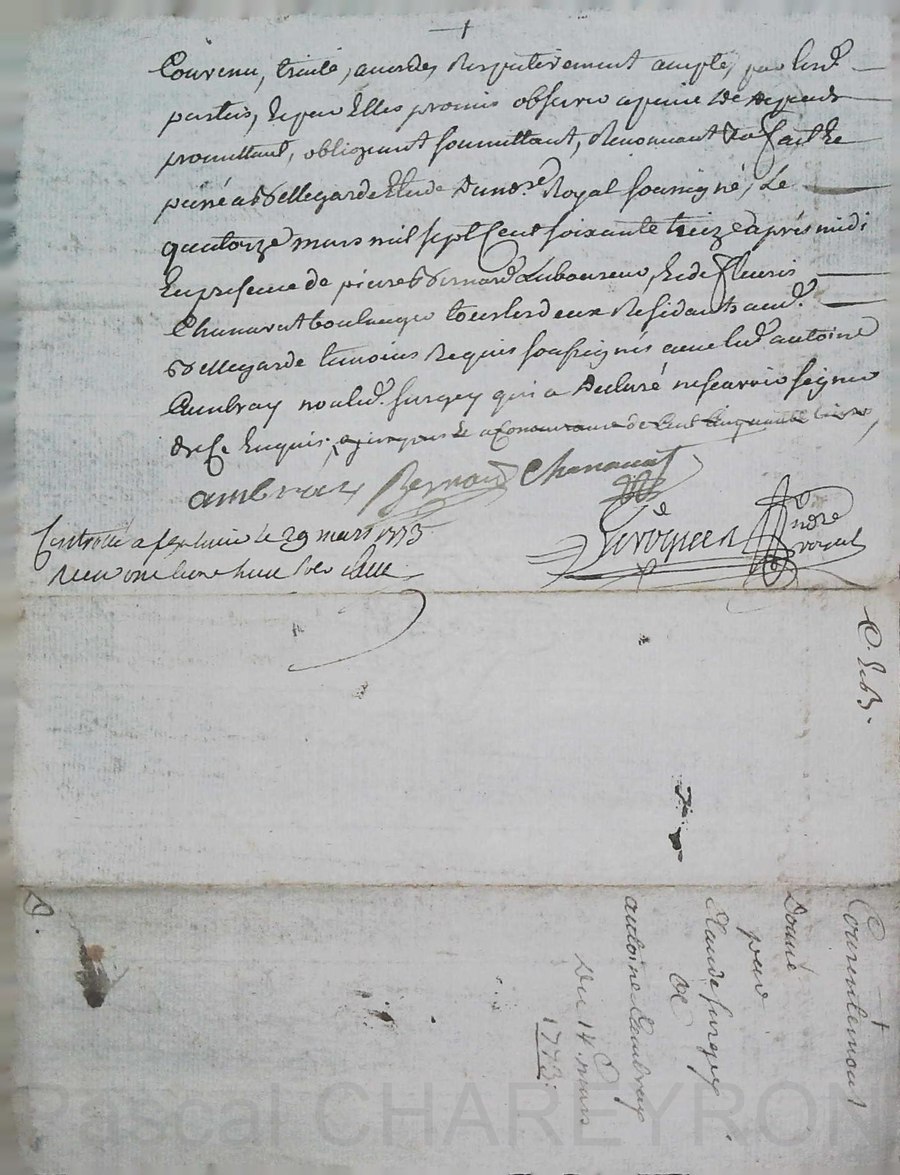 Convenu, traité, accordé, Respectivement accepté, par lesd.
parties, & par Elles promis observer a peine de depends
promettant, obligeant soumettant, Renonçant &a fait &
passé a Bellegarde Etude du no.re Royal soussigné, Le
quatorze mars mil sept Cent soixante treize après midi
En presence de pierre Bernard Laboureur, & de fleuris
Chanavat boulanger tous les deux Residants aud.
Bellegarde temoins Requis soussignés avec led. antoine
Cambray non led. Surgey qui a declaré ne sçavoir signer
de ce Enquis
cambray Bernard Chanavat
Controllé a le 29 mars 1773
Recu une livre huit sols
no.re royal
C. Exp.
Consentement
Donné
par
Claude Surgey
a
antoine Cambray
Du 14 mars
1773.
Pascal CHAREYRON